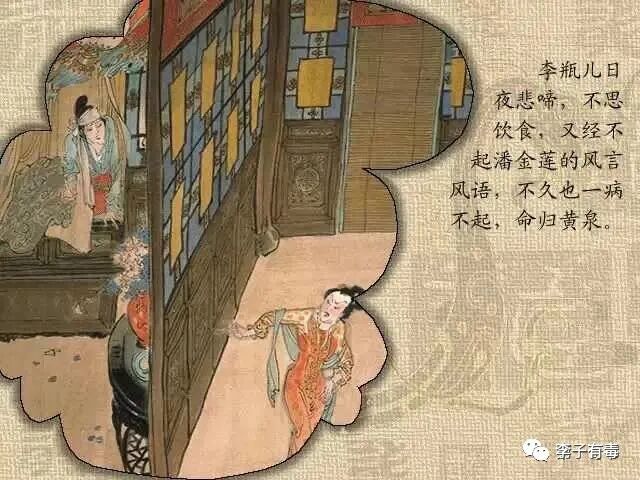 李瓶儿日
夜悲啼，不思
饮食，又经不
起潘金莲的风言
风语，不久也一病
不起，命归黄泉。
李子有毒